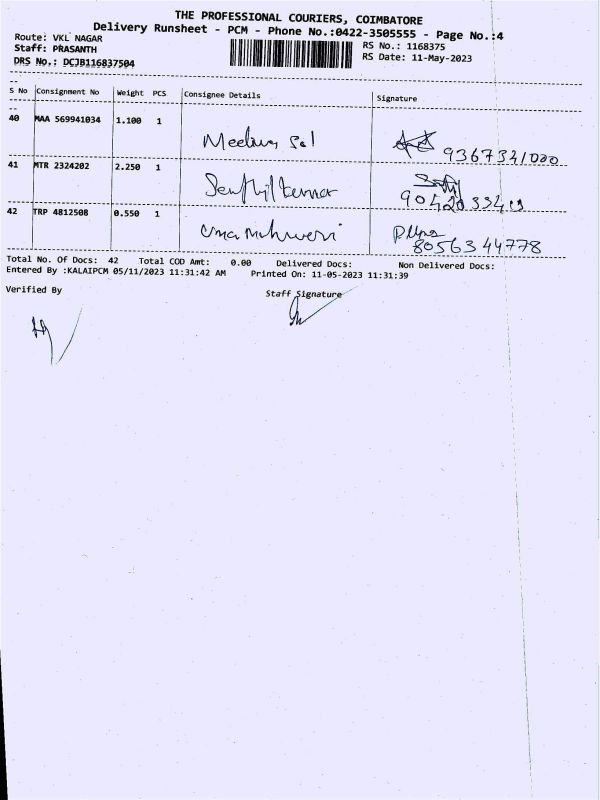 THE PROFESSIONAL COURIERS, COIMBATORE
Delivery Runsheet - PCM - Phone No.:0422-3505555 - Page No.:4
Route: VKL NAGAR
RS No.: 1168375
Staff: PRASANTH
RS Date: 11-May-2023
DRS No.: DCJB116837504
S No Consignment No Weight PCS Consignee Details Signature
40 MAA 569941034 1.100 1
9367341000
41 MTR 2324202 2.250 1 Senthilkumar
42 TRP 4812508 0.550 1 Umamaheswari
8056344778
Total No. Of Docs: 42 Total COD Amt: 0.00 Delivered Docs: Non Delivered Docs:
Entered By :KALAIPCM 05/11/2023 11:31:42 AM Printed On: 11-05-2023 11:31:39
Verified By Staff Signature